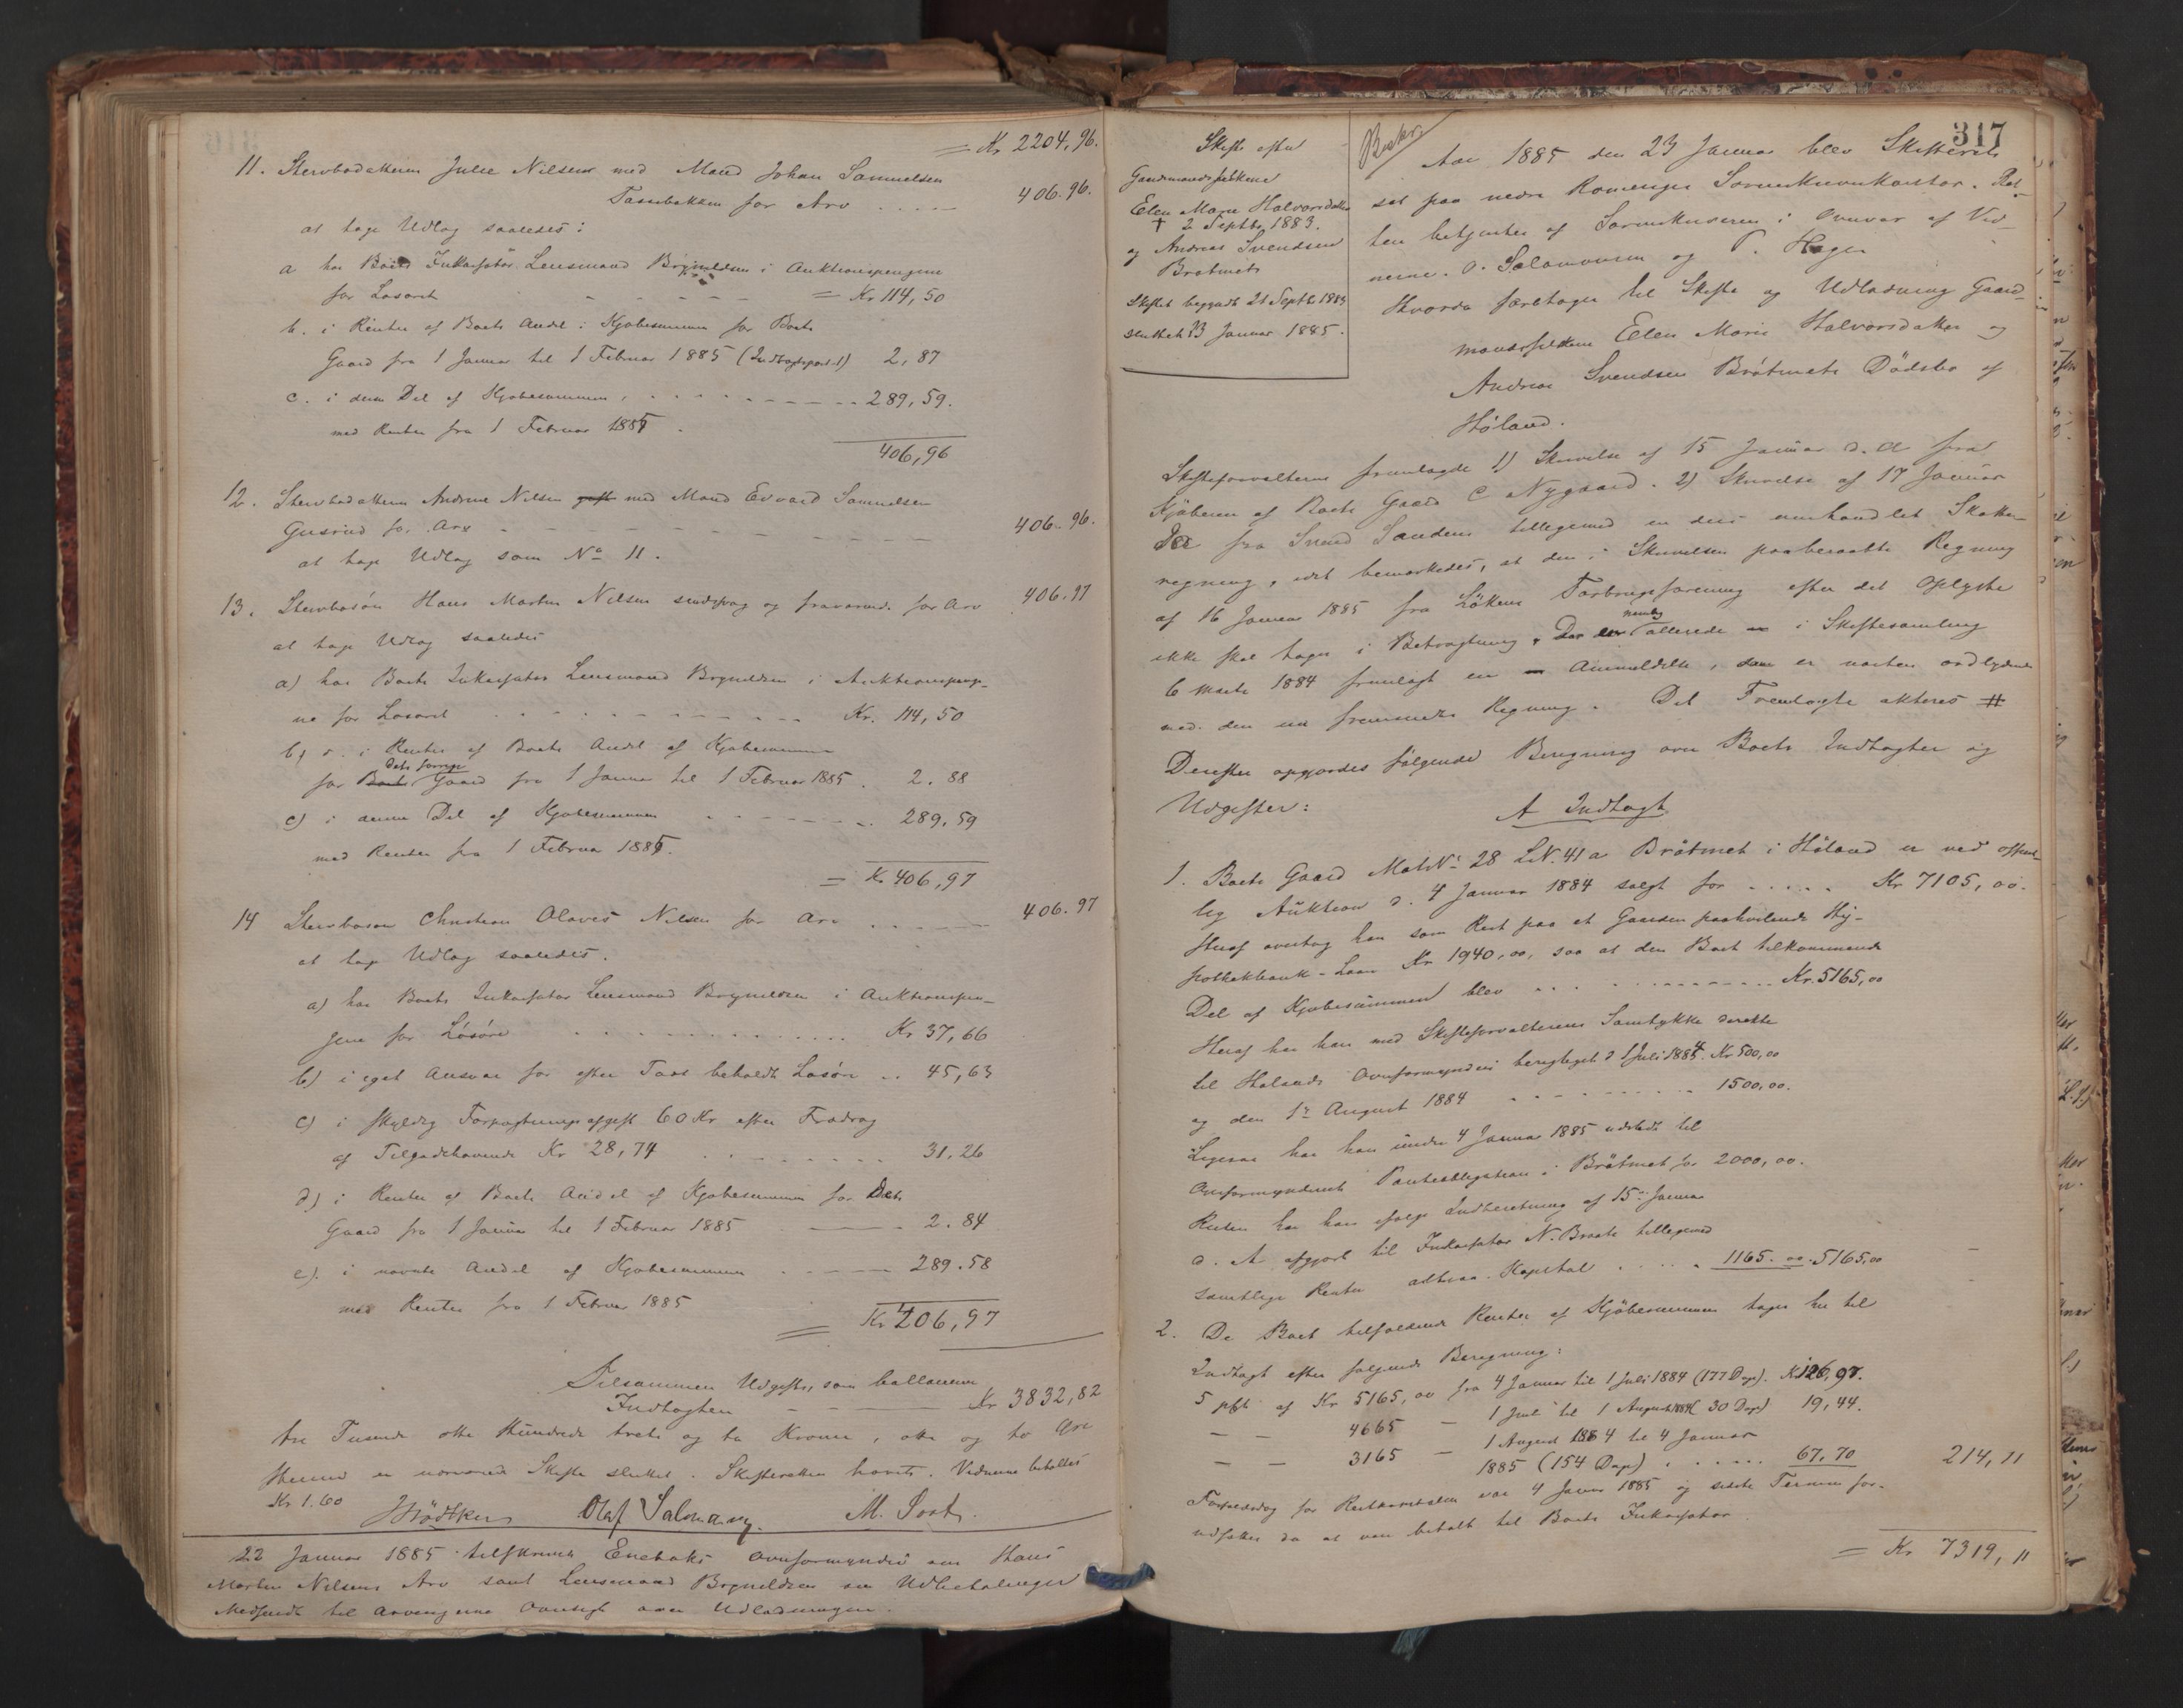 = Kr 2204,96.
11. Stervbodatteren Julie Nilsen med Mand Johan Samuelsen
Tasebakken for Arv 406.96.
at tage Udlæg saaledes:
a hos Boets Inkassator Lensmand Brynildsen i Auktionspengene
for Løsøret = Kr 114,50
b. i Renter af Boets Andel i Kjøbesummen for Boets
Gaard fra 1 Januar til 1 Februar 1885 (Indtægtspost 1) 2,87
c. i denne Del af Kjøbesummen, 289,59.
med Renter fra 1 Februar 1885.
406,96
12. Stervbodatteren Andrine Nilsen gift med Mand Edvard Samuelsen
Gusrud for Arv 406.96.
at tage Udlæg som No 11.
13. Stervbosøn Hans Martin Nilsen sindssvag og fraværende for Arv 406.97
at tage Udlæg saaledes
a) hos Boets Inkassator Lensmand Brynildsen i Auktionspenge-
ne for Løsøret Kr. 114,50
b) i Renter af Boets Andel af Kjøbesummen
dets forrige
for Boets Gaard fra 1 Januar til 1 Februar 1885. 2.88
c) i denne Del af Kjøbesummen 289.59
med Renter fra 1 Februar 1885.
= Kr 406,97
14 Stervbosøn Christian Olaves Nilsen for Arv 406.97
at tage Udlæg saaledes.
a) hos Boets Inkassator Lensmand Brynildsen i Auktionspen-
gene for Løsøre Kr 37,66
b) i eget Ansvar for efter Taxt beholdt Løsøre 45,63
c) i skyldig Forpagtningsafgift 60 Kr efter Fradrag
af Tilgodehavende Kr 28,74 31.26
d) i Renter af Boets Andel af Kjøbesummen for Dets
Gaard fra 1 Januar til 1 Februar 1885 2.84
e). i nævnte Andel af Kjøbesummen 289.58
med Renter fra 1 Februar 1885
= Kr 406,97
Tilsammen Udgifter, som ballancerer
Indtægten Kr 3832,82
tre Tusinde otte Hundrede treti og to Kroner, otti og to Øre
Hermed er nærværende Skifte sluttet. Skifteretten hævet. Vidnerne betaltes
Kr 1.60
Olaf Salomonsen. M.
22 Januar 1885 tilskreves Enebaks Overformynderi om Hans
Martin Nilsens Arv samt Lensmand Brynildsen om Udbetalinger
Medsendt til Arvingerne Oversigt over Udlodningen.
317
Skifte efter
Gaardmandsfolkene
Elen Marie Halvorsdatter
† 2 Septbr 1883.
og Andreas Svendsen
Bråtmets
Skiftet begyndt 21 Septbr 1883
sluttet 23 Januar 1885.
Beskr.
Aar 1885 den 23 Januar blev Skifteret
sat paa nedre Romeriges Sorenskriverkontor. Ret-
ten betjentes af Sorenskriveren i Overvær af Vid-
nerne. O. Salomonsen og P. Hagen
Hvorda foretoges til Skifte og Udlodning Gaard-
mandsfolkene Elen Marie Halvorsdatter og
Andreas Svendsen Bråtmets Dødsbo af
Høland.
Skifteforvalteren fremlagde 1) Skrivelse af 15 Januar d. A fra
Kjøberen af Boets Gaard C Nygaard. 2) Skrivelse af 17 Januar
fra Svend Sanden tilligemed en deri omhandlet Skatte-
regning, idet bemærkedes, at den i Skrivelsen paaberaabte Regning
af 16 Januar 1885 fra Løkens Forbrugsforening efter det Oplyste
nemlig
ikke skal tages i Betragtning, Der er allerede i Skiftesamling
6 Marts 1884 fremlagt en Anmeldelse, som er næsten ordlydende
med den nu fremsendte Regning. Det Fremlagte akteres #
Derefter opgjordes følgende Beregning over Boets Indtægter og
Udgifter:
A Indtægt
1. Boets Gaard Mat No 28 LN. 41 a Bråtmet i Høland er ved offent-
lig Auktion d. 4 Januar 1884 solgt for Kr 7105,00.
Heraf overtog han som Rest paa et Gaarden paahvilende Hy-
pothekbank-Laan Kr 1940,00, saa at den Boet tilkommende
Del af Kjøbesummen blev Kr. 5165,00
Heraf har han med Skifteforvalterens Samtykke direkte
til Hølands Overformynderi berigtiget d 1 Juli 1884. Kr 500,00
og den 1ste August 1884 1500,00.
Ligesaa har han under 4 Januar 1885 udstedt til
Overformynderiet Panteobligation i Bråtmet for 2000,00.
Resten har han ifølge Indberetning af 15de Januar
d. A afgjort til Inkassator N. Braate tilligemed
samtlige Renter altsaa Kapital 1165.00. 5165,00
2. De Boet tilfaldende Renter af Kjøbesummen tages her til
Indtægt efter følgende Beregning:
5 pCt af Kr 5165,00 fra 4 Januar til 1 Juli 1884 (177 Dage). Kr 126,97.
— — 4665 — 1 Juli til 1 August 1884 (30 Dage) 19,44.
— — 3165 — 1 August 1884 til 4 Januar
1885 (154 Dage) 67,70 214,11
Forfaldsdag for Restkapitalen var 4 Januar 1885 og sidste Termin for-
udsættes da at være betalt til Boets Inkassator
= Kr 7319,11